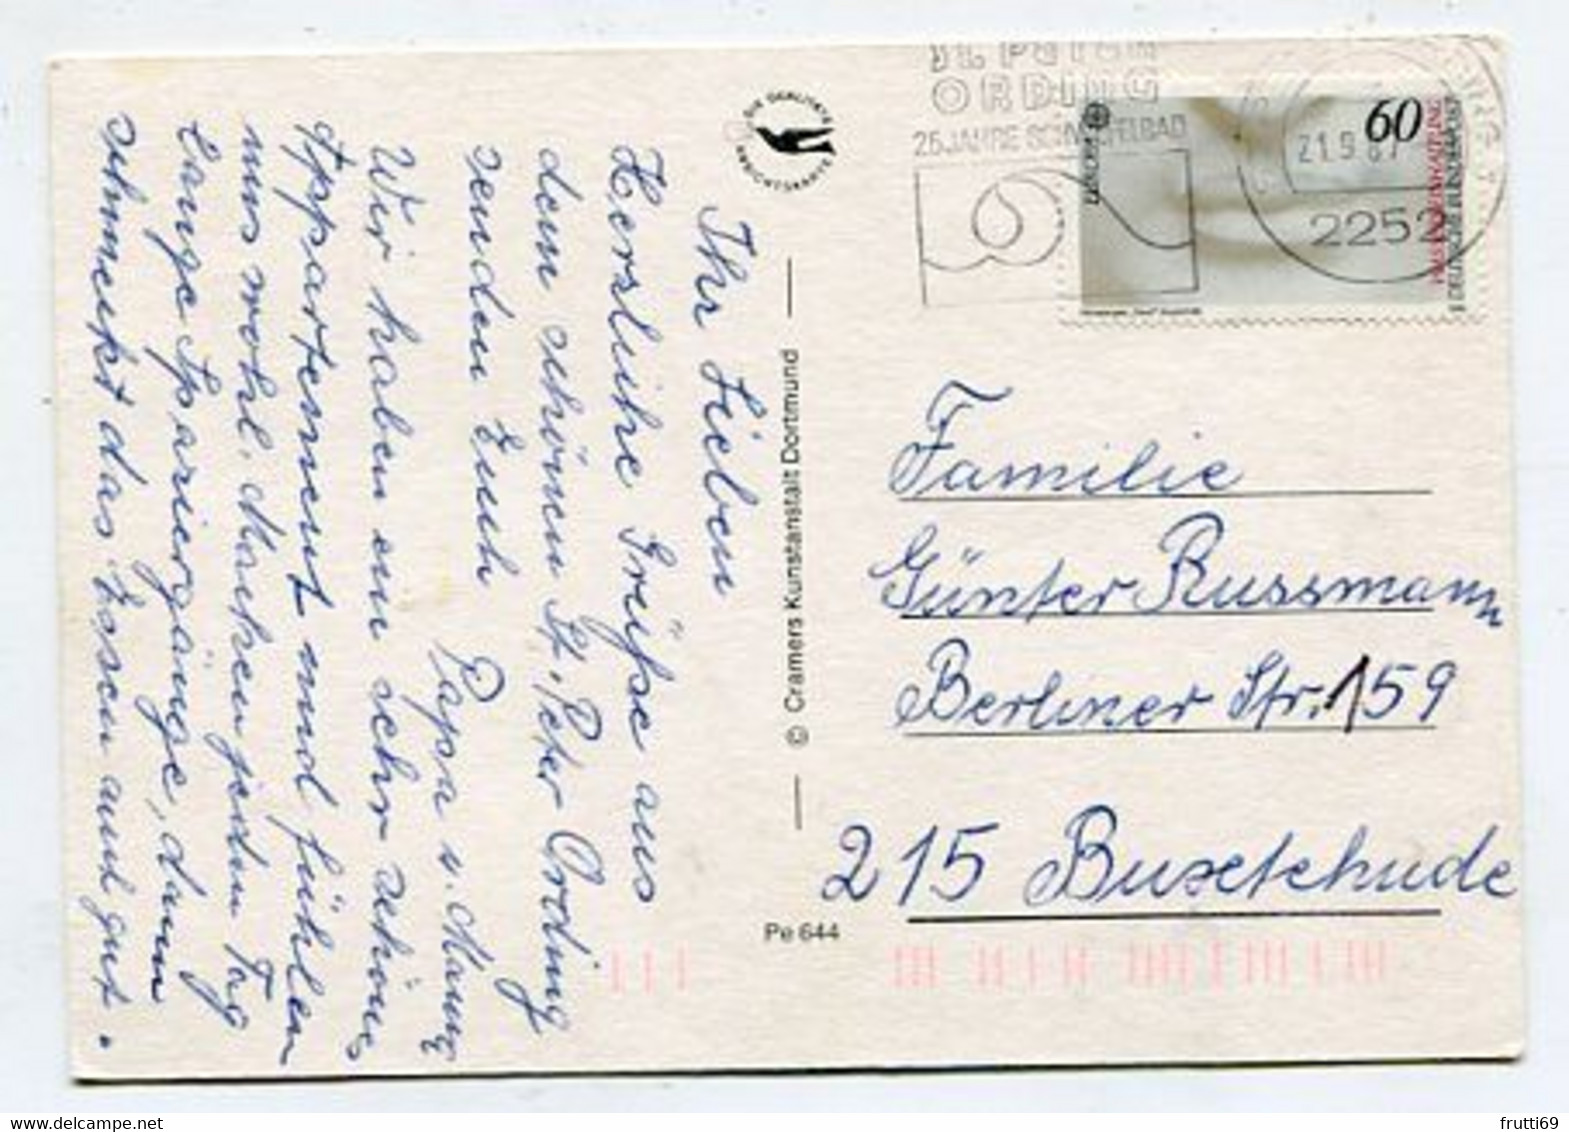 Ihr Lieben
Herzliche Grüße aus
dem schönen St. Peter Ording
senden Euch
Papa u. Mama
Wir haben ein sehr schönes
Appartement und fühlen
uns wohl. Machen jeden Tag
lange Spaziergänge, dann
schmeckt das Essen auch gut.
DIE QUALITÄTS
ANSICHTSKARTE
© Cramers Kunstanstalt Dortmund
Pe 644
ST. PETER
ORDING
25 JAHRE SCHWEFELBAD
21.9.87
2252
60
EUROPA
DEUTSCHE BUNDESPOST
Familie
Günter Russmann
Berliner Str. 159
215 Buxtehude
frutti69